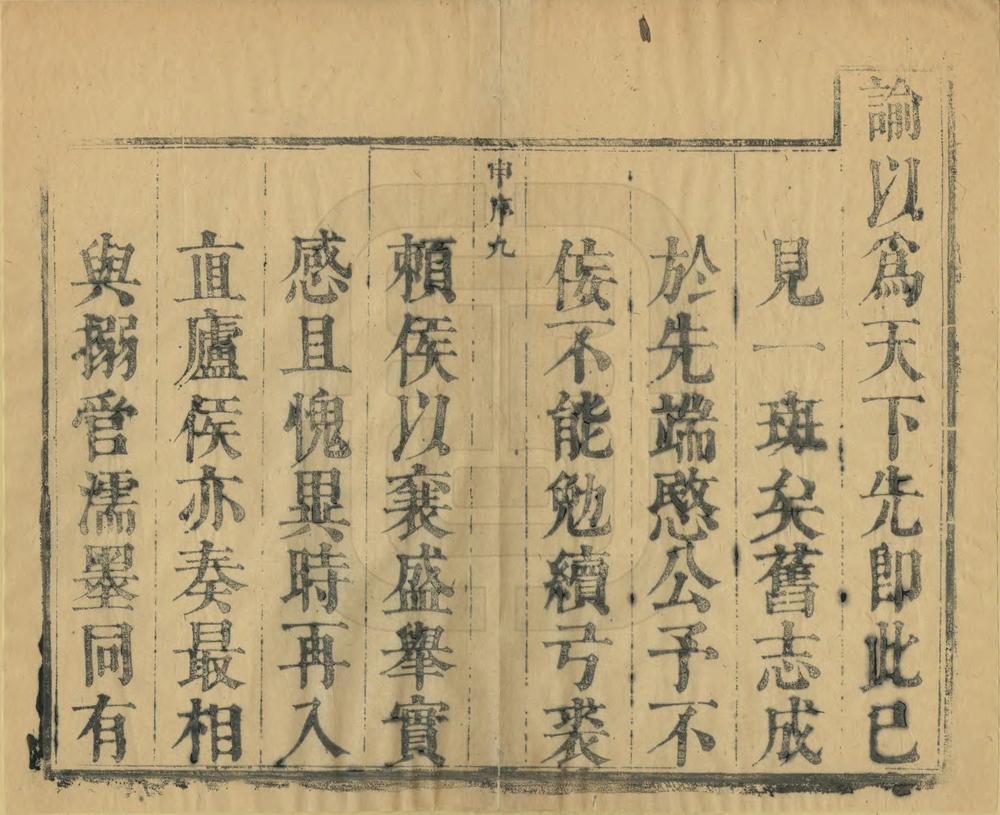 諭以為天下先即此已
見一斑矣舊志成
於先端愍公予不
佞不能勉續弓裘
申序九
賴侯以襄盛舉實
感且愧異時再入
直廬侯亦奏最相
與搦管濡墨同有